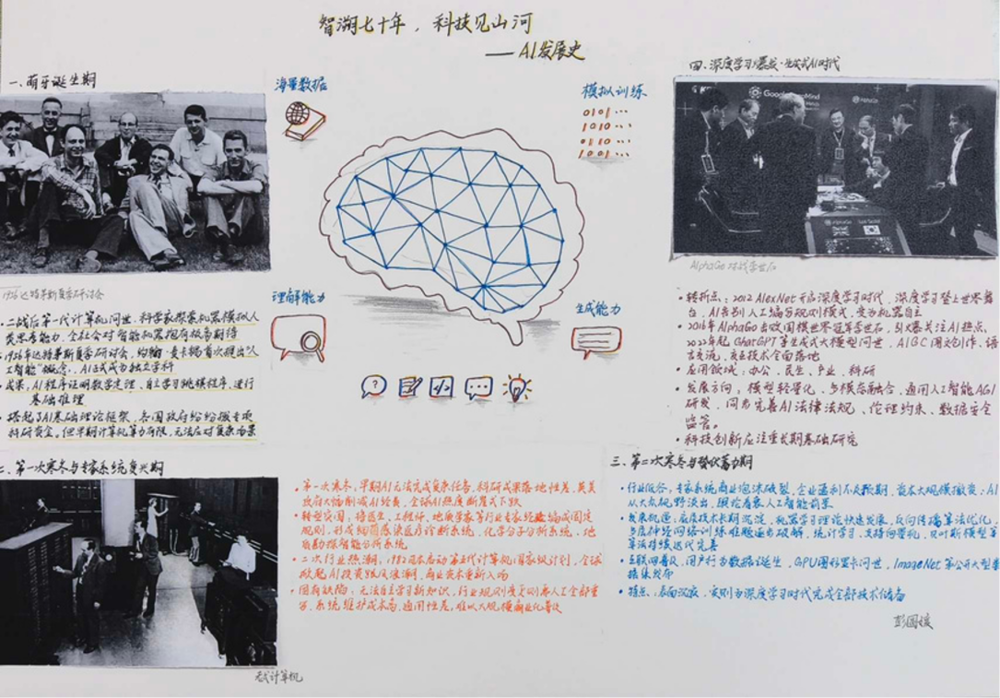 智溯七十年，科技见山河
——AI发展史
一、萌芽诞生期
1956达特茅斯夏季研讨会
·二战后第一代计算机问世，科学家探索机器模拟人
类思考能力，全社会对智能机器抱有极高期待
·1956年达特茅斯夏季研讨会，约翰·麦卡锡首次提出"人
工智能"概念，AI正式成为独立学科
·成果：AI程序证明数学定理、自主学习跳棋程序、进行
基础推理
·搭起了AI基础理论框架，各国政府纷纷拨专项
科研资金。但早期计算机算力有限，无法应对复杂场景
海量数据
模拟训练
0101…
1010…
0110…
1001…
理解能力
生成能力
二、第一次寒冬与专家系统复兴期
老式计算机
·第一次寒冬，早期AI无法完成复杂任务，科研成果落地性差，英美
政府大幅削减AI经费，全球AI热度断崖式下跌
·转型突围，将医生、工程师、地质学家等行业专家经验编成固定
规则，形成细菌感染医疗诊断系统，化学分子分析系统，地
质勘探智能分析系统
·二次行业热潮，1982日本启动第五代计算机国家级计划，全球
掀起AI投资 浪潮，商业资本重新入局
·固有缺陷：无法自主学习新知识，行业规则更新需人工全部重
写，系统维护成本高，通用性差，难以大规模商业化普及
三、第二次寒冬与蛰伏蓄力期
·行业低谷，专家系统商业泡沫破裂，企业盈利不及预期，资本大规模撤资；AI
从大众视野淡出，舆论看衰人工智能前景
·发展机遇：底层技术长期沉淀，机器学习理论快速发展，反向传播算法优化，
多层神经网络训练难题逐步破解，统计学习、支持向量机、贝叶斯模型等
算法持续迭代完善
·互联网普及，用户行为数据诞生，GPU图形显卡问世，ImageNet等公开大型数
据集发布
·特点：表面沉寂，实则为深度学习时代完成全部技术储备
四、深度学习爆发·生成式AI时代
Google DeepMind
AlphaGo
AlphaGo
AlphaGo对战李世石
·转折点：2012 AlexNet开启深度学习时代，深度学习登上世界舞
台，AI告别人工编写规则模式，变为机器自主
·2016年AlphaGo击败围棋世界冠军李世石，引发爆关注AI热点，
2022年起ChatGPT等生成式大模型问世，AIGC图文创作、语
言交流，交互技术全面落地
·应用领域：办公、民生、产业、科研
·发展方向：模型轻量化，多模态融合，通用人工智能AGI
研发，同步完善AI法律法规、伦理约束、数据安全
监管。
·科技创新应注重长期基础研究